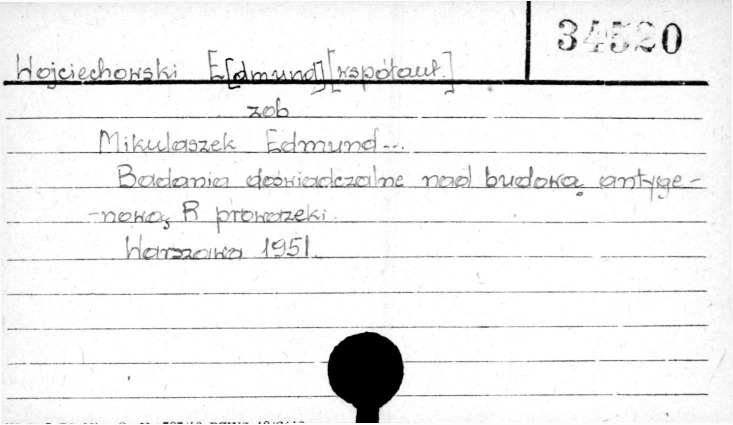 34520
Wojciechowski E[dmund] [współaut.]
zob
Mikulaszek Edmund...
Badania doświadczalne nad budową antyge-
-nową R prowazeki.
Warszawa 1951.